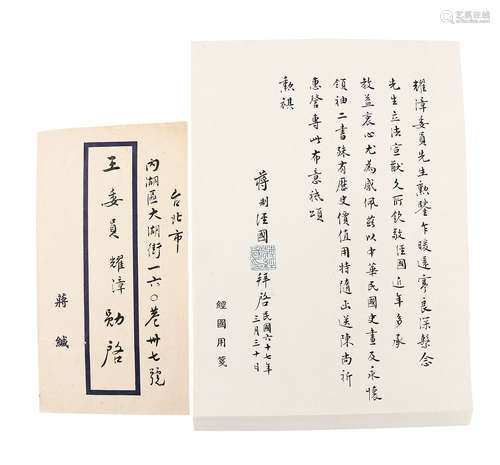 耀漳委員先生勳鑒乍暖還寒良深繫念
先生立法宣猷久所欽敬經國近年多承
教益衷心尤為感佩茲以中華民國史畫及永懷
領袖二書殊有歷史價值用特隨函送陳尚祈
惠詧專此布意祗頌
勛祺
蔣制經國 拜啓 民國六十七年
三月三十日
經國用箋
台北市
內湖區大湖街一六〇巷卅七號
王委員耀漳勛啓
蔣緘